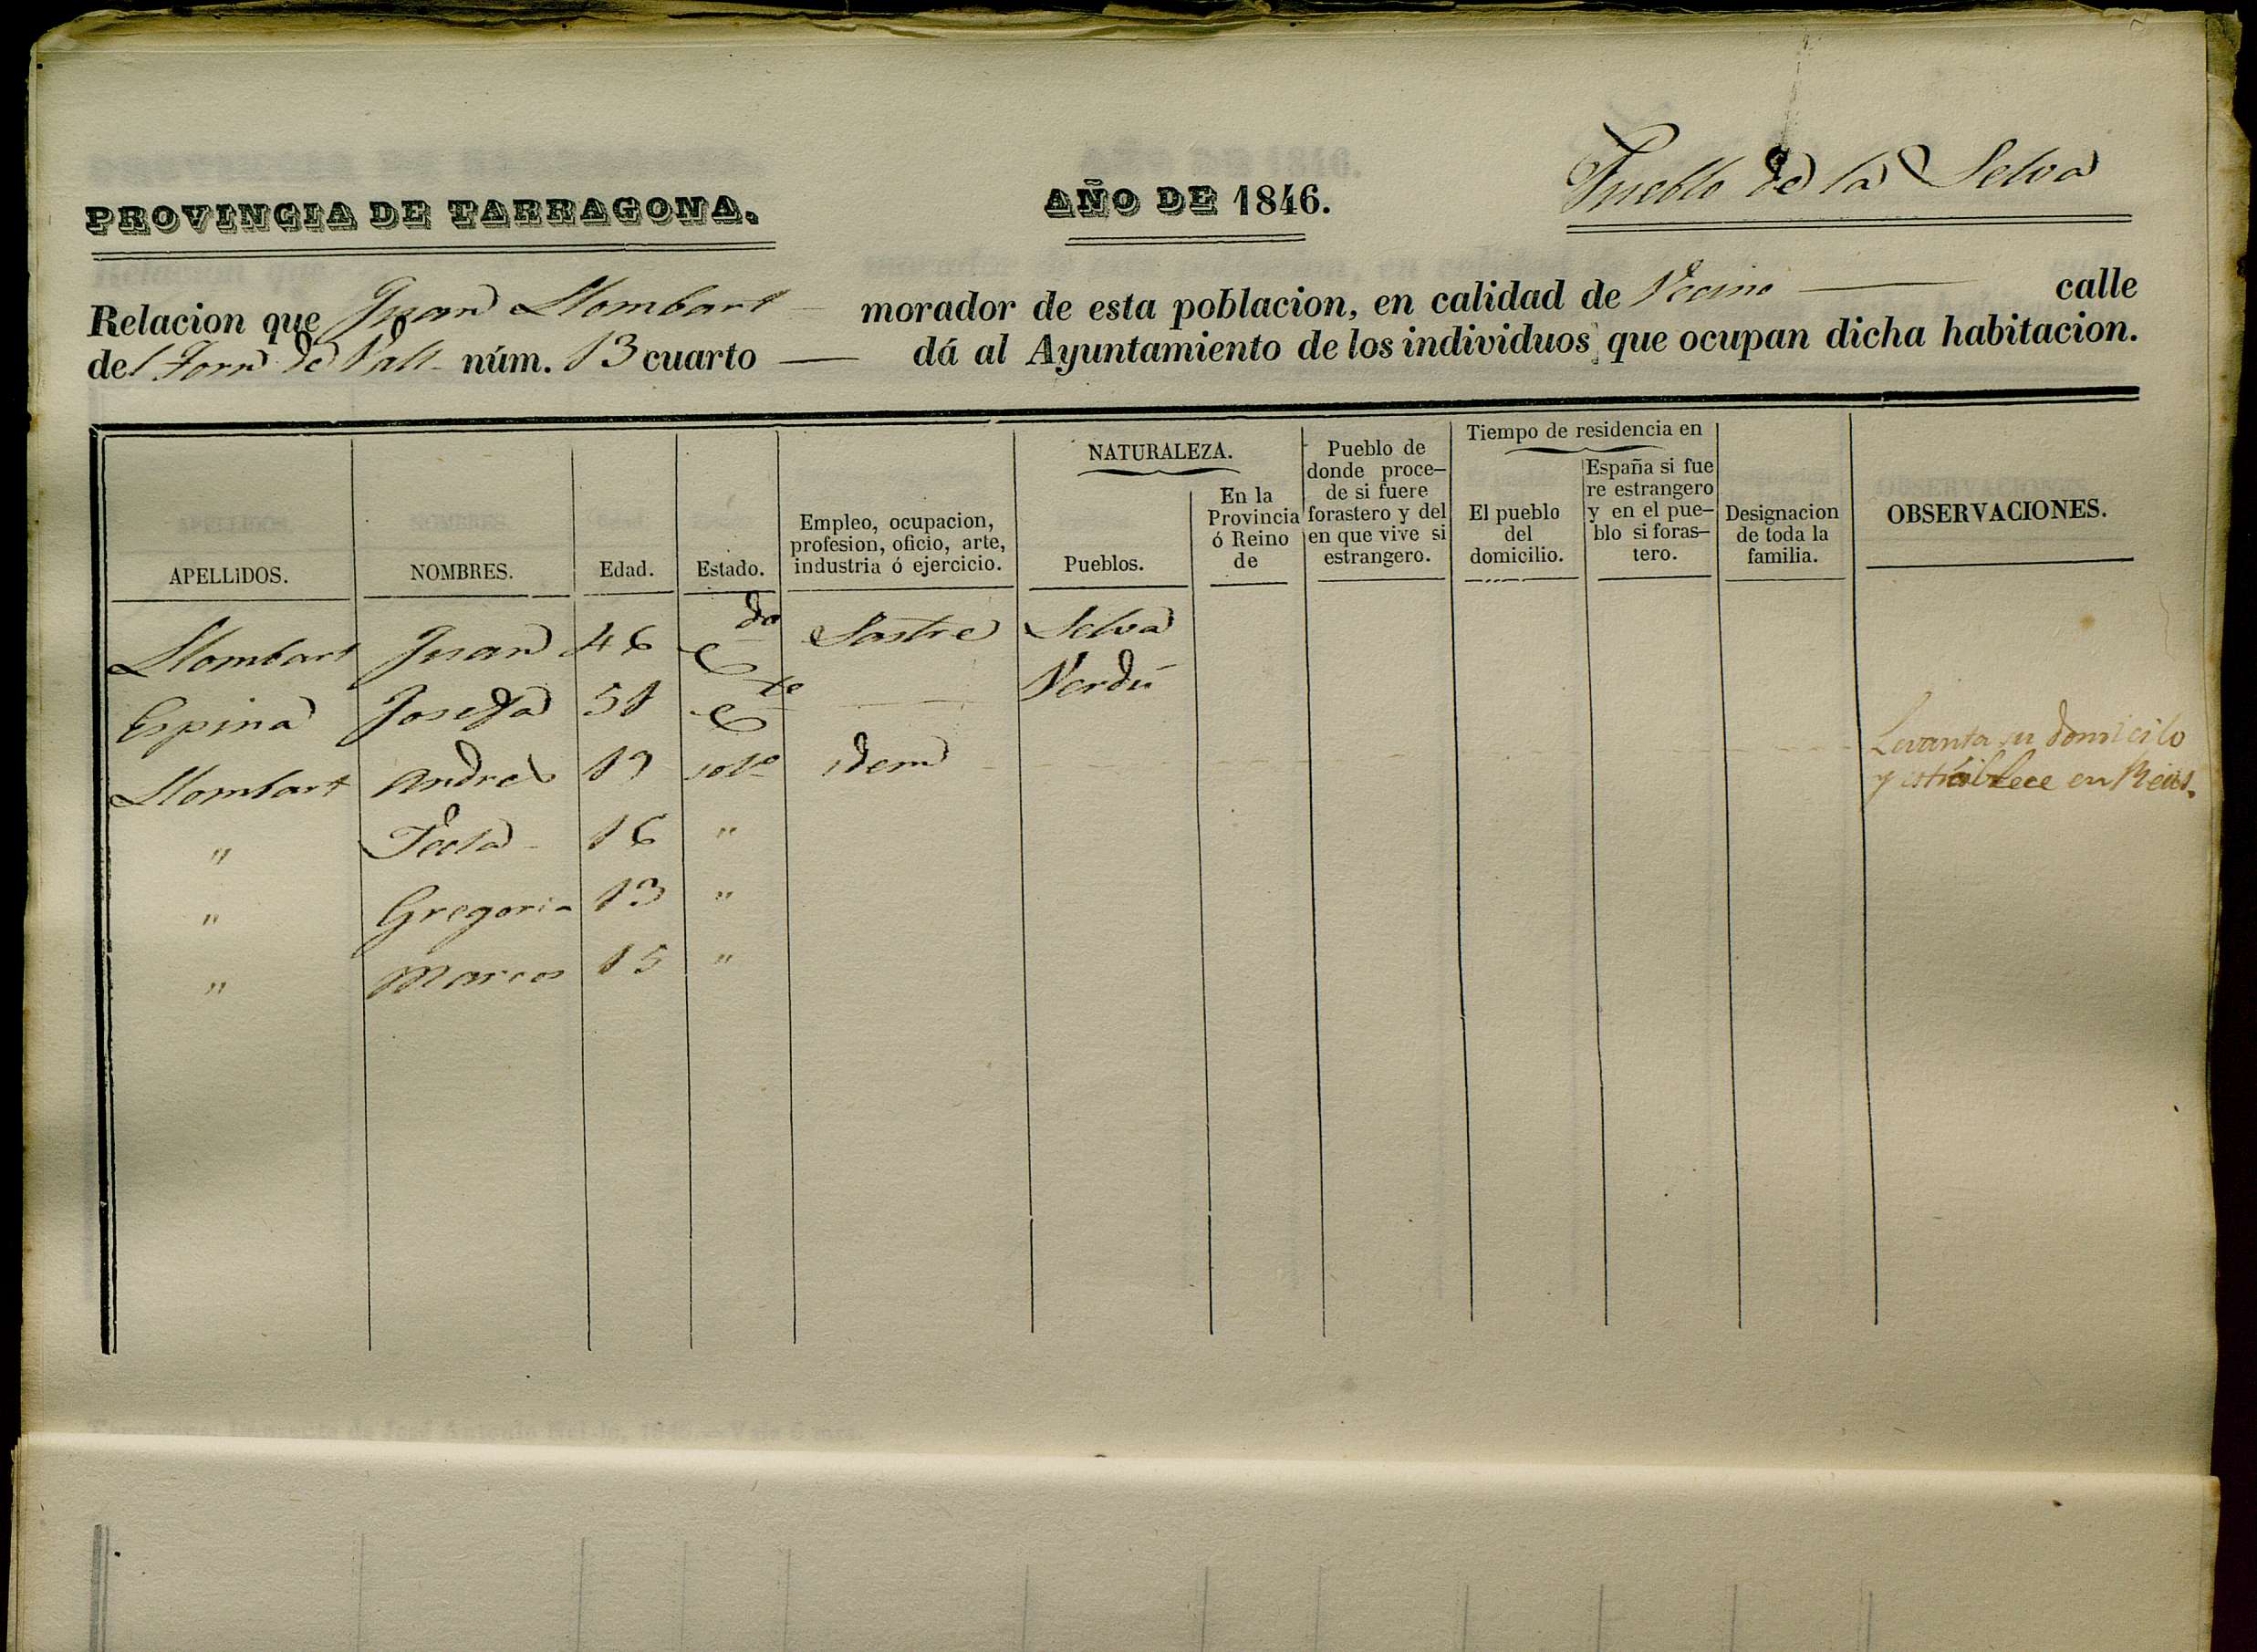 PROVINCIA DE TARRAGONA. AÑO DE 1846. Pueblo de la Selva
Relacion que Juan Llombart morador de esta poblacion, en calidad de Vecino — calle
del Forn de Vall núm. 13 cuarto — dá al Ayuntamiento de los individuos que ocupan dicha habitacion.
APELLIDOS. NOMBRES. Edad. Estado. Empleo, ocupacion, profesion, oficio, arte, industria ó ejercicio. NATURALEZA. Pueblos. En la Provincia ó Reino de Pueblo de donde proce- de si fuere forastero y del en que vive si estrangero. Tiempo de residencia en El pueblo del domicilio. España si fue re estrangero y en el pue- blo si foras- tero. Designacion de toda la familia. OBSERVACIONES.
Llombart Juan 46 C.do Sastre Selva
Espina Josefa 51 C.te Verdú
Llombart Andres sol.o idem Levanta su domicilo
y establece en Reus.
" Tecla 16 "
" Gregoria 13 "
" Marcos 15 "